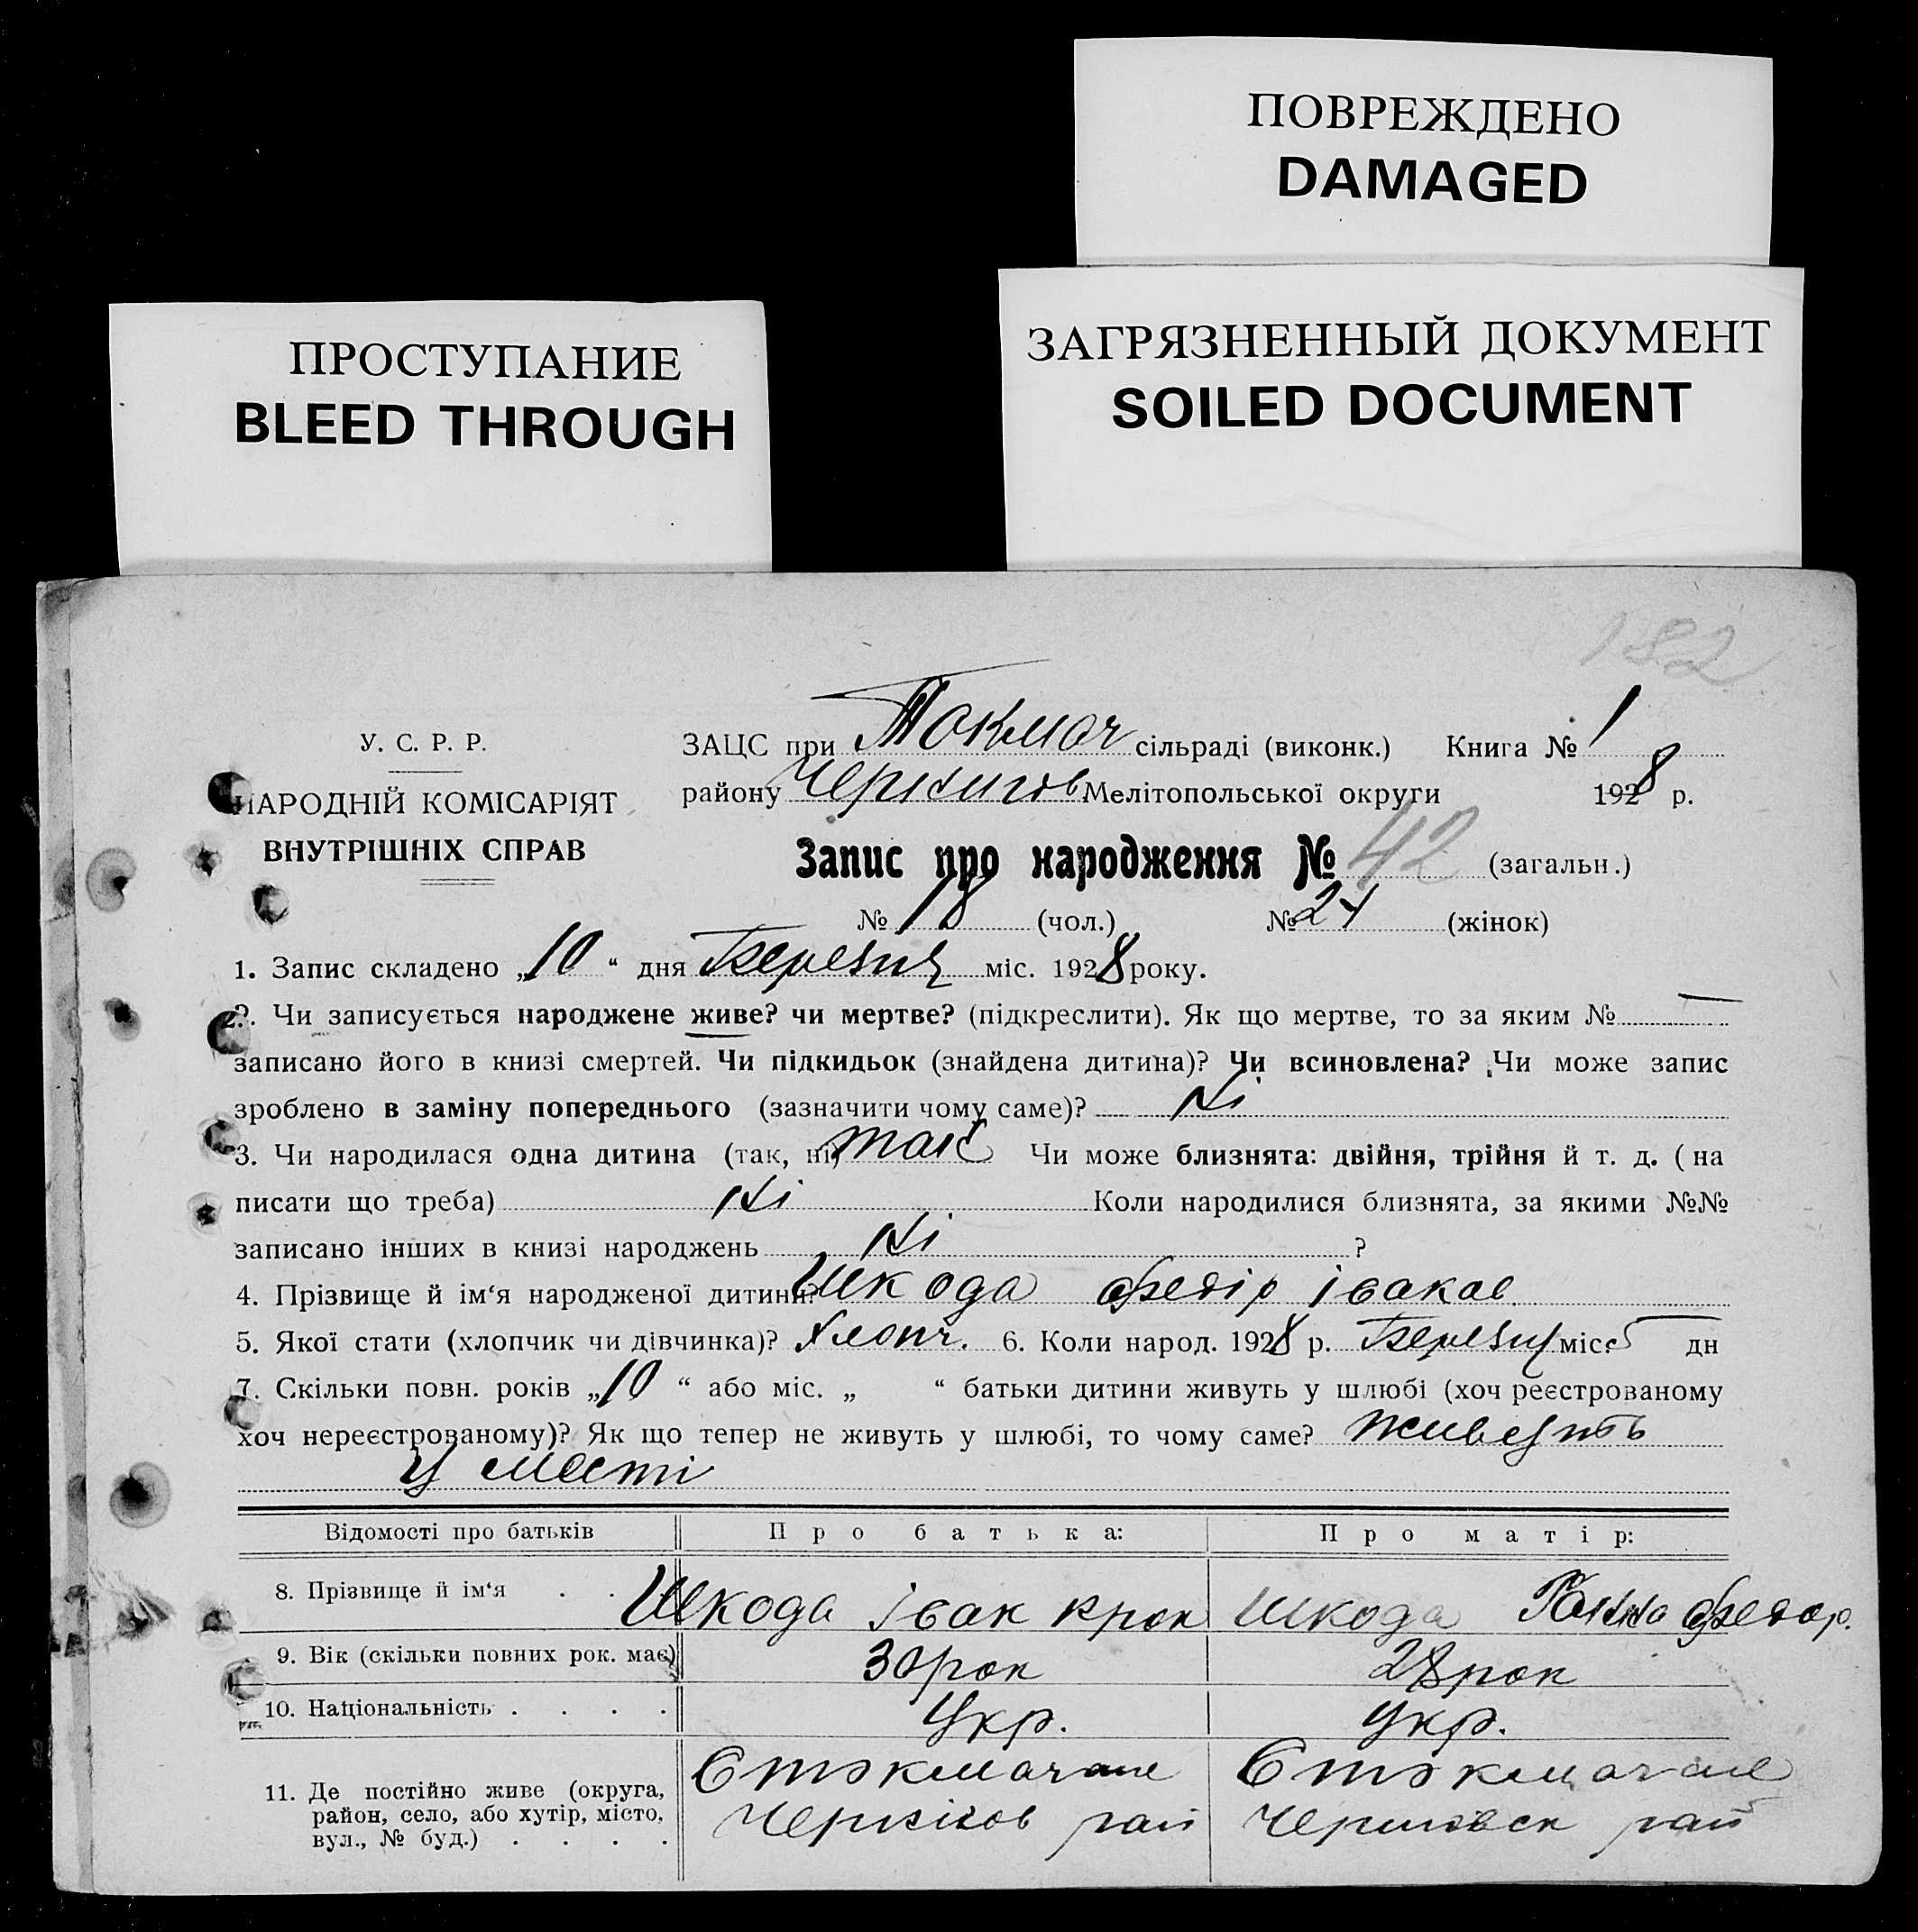 ПОВРЕЖДЕНО
DAMAGED
ПРОСТУПАНИЕ
BLEED THROUGH
ЗАГРЯЗНЕННЫЙ ДОКУМЕНТ
SOILED DOCUMENT
182
У. С. Р. Р.
НАРОДНІЙ КОМІСАРІЯТ
ВНУТРІШНІХ СПРАВ
ЗАЦС при Токмач сільраді (виконк.) Книга № 1
району Чернигов Мелітопольської округи 1928 р.
Запис про народження № 42 (загальн.)
№ 18 (чол.) № 24 (жінок)
1. Запис складено „10“ дня Березня міс. 1928 року.
2. Чи записується народжене живе? чи мертве? (підкреслити). Як що мертве, то за яким № —
записано його в книзі смертей. Чи підкидьок (знайдена дитина)? Чи всиновлена? Чи може запис
зроблено в заміну попереднього (зазначити чому саме)? Ні
3. Чи народилася одна дитина (так, ні) так Чи може близнята: двійня, трійня й т. д. (на
писати що треба) Ні Коли народилися близнята, за якими №№
записано інших в книзі народжень Ні ?
4. Прізвище й ім‘я народженої дитини? Шкода Федір Іванов
5. Якої стати (хлопчик чи дівчинка)? Хлопч. 6. Коли народ. 1928 р. Березня міс. 5 дн
7. Скільки повн. років „10“ або міс. „ “ батьки дитини живуть у шлюбі (хоч реєстрованому
хоч нереєстрованому)? Як що тепер не живуть у шлюбі, то чому саме? живуть
у
Відомості про батьків Про батька: Про матір:
8. Прізвище й ім‘я . . Шкода Іван Крон Шкода Ганна Федор.
9. Вік (скільки повних рок. має) 30 рок 28 рок
10. Національність . . . . Укр. Укр.
11. Де постійно живе (округа,
район, село, або хутір, місто,
вул., № буд.) . . . .
Чернігов рай
рай